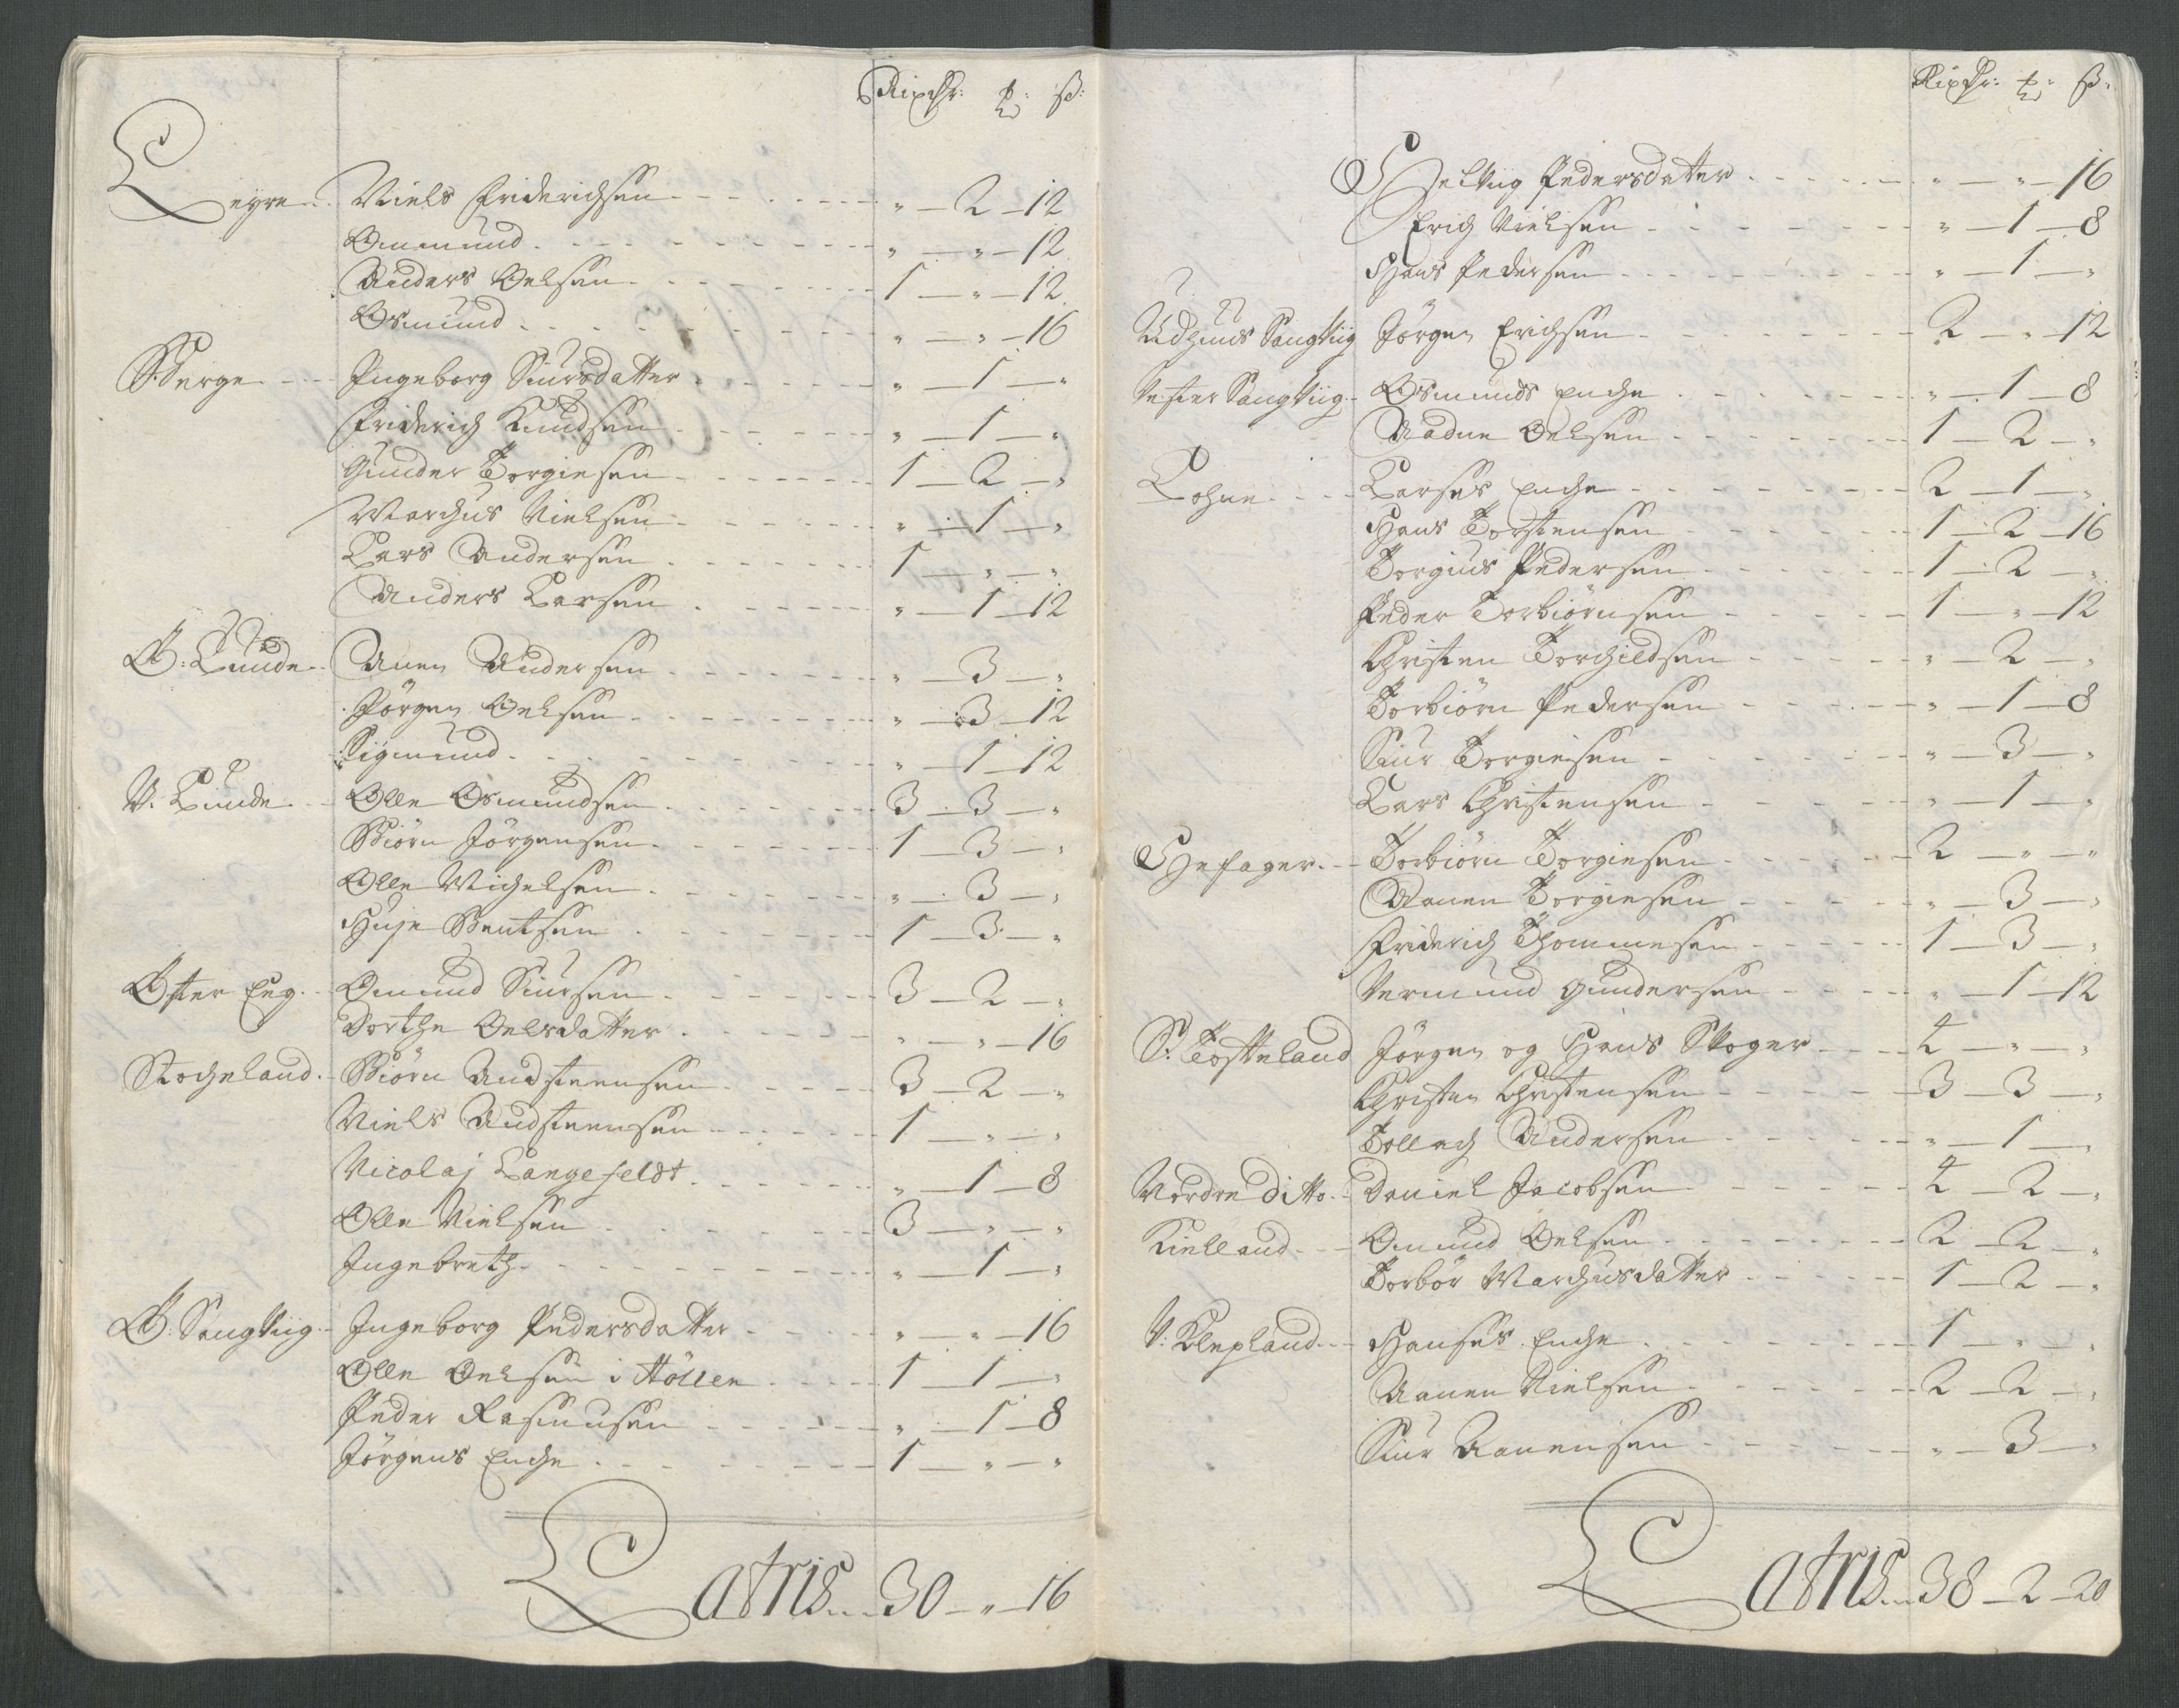 Rixdr: ℔: ß:
Leyre Niels Friderichsen " 2 12
Ommund " " 12
Anders Oelsen 1 " 12
Osmund " " 16
Berge Ingeborg Siursdatter " 1 "
Friderich Knudsen " 1 "
Gunder Torgiesen 1 2 "
Marchus Nielsen " 1 "
Lars Andersen 1 " "
Anders Larsen " 1 12
Ø: Lunde Anen Andersen " 3 "
Jörgen Oelsen " 3 12
Sigmund " 1 12
V. Lunde Olle Osmundsen 3 3 "
Biörn Jörgensen 1 3 "
Olle Michelsen " 3 "
Huje Bentsen 1 3 "
Øster Eeg Omund Siursen 3 2 "
Dorthe Oelsdatter " " 16
Stocheland Biörn Audsteensen 3 2 "
Niels Audsteensen 1 " "
Nicolaj Langefeldt " 1 8
Olle Nielsen 3 " "
Ingebreth " 1 "
Ø: Sangviig Ingeborg Pedersdatter " " 16
Olle Oelsen i Höllen 1 1 "
Peder Rasmusen " 1 8
Jörgens Enche 1 " "
Latris 30 " 16
Rixdr: ℔: ß:
Selviig Pedersdatter " " 16
Erich Nielsen " 1 8
Hans Pedersen " 1 "
Udhuus Sangviig Jörgen Erichsen 2 " 12
Vester Sangviig Osmunds Enche " 1 8
Aadne Oelsen 1 2 "
Lohne Larses Enche 2 1 "
Hans Torstensen 1 2 16
Torgius Pedersen 1 2 "
Peder Torbiörnsen 1 " 12
Christen Torchildsen " 2 "
Torbiörn Pedersen " 1 8
Siur Torgiesen " 3 "
Lars Christensen " 1 "
Hefager Torbiörn Torgiesen 2 " "
Aanen Torgiesen " 3 "
Friderich Thommesen 1 3 "
Vermund Gundersen " 1 12
S: Tostteland Jörgen og Hans Skoger 4 " "
Christen Christensen 3 3 "
Tollach Andersen " 1 "
Nordre Ditto Daniel Jacobsen 4 2 "
Kielland Omund Oelsen 2 2 "
Torbör Marchusdatter 1 2 "
V: Klepland Hanses Enche 1 " "
Aanen Nielsen 2 2 "
Siur Aanensen " 3 "
Latris 38 2 20